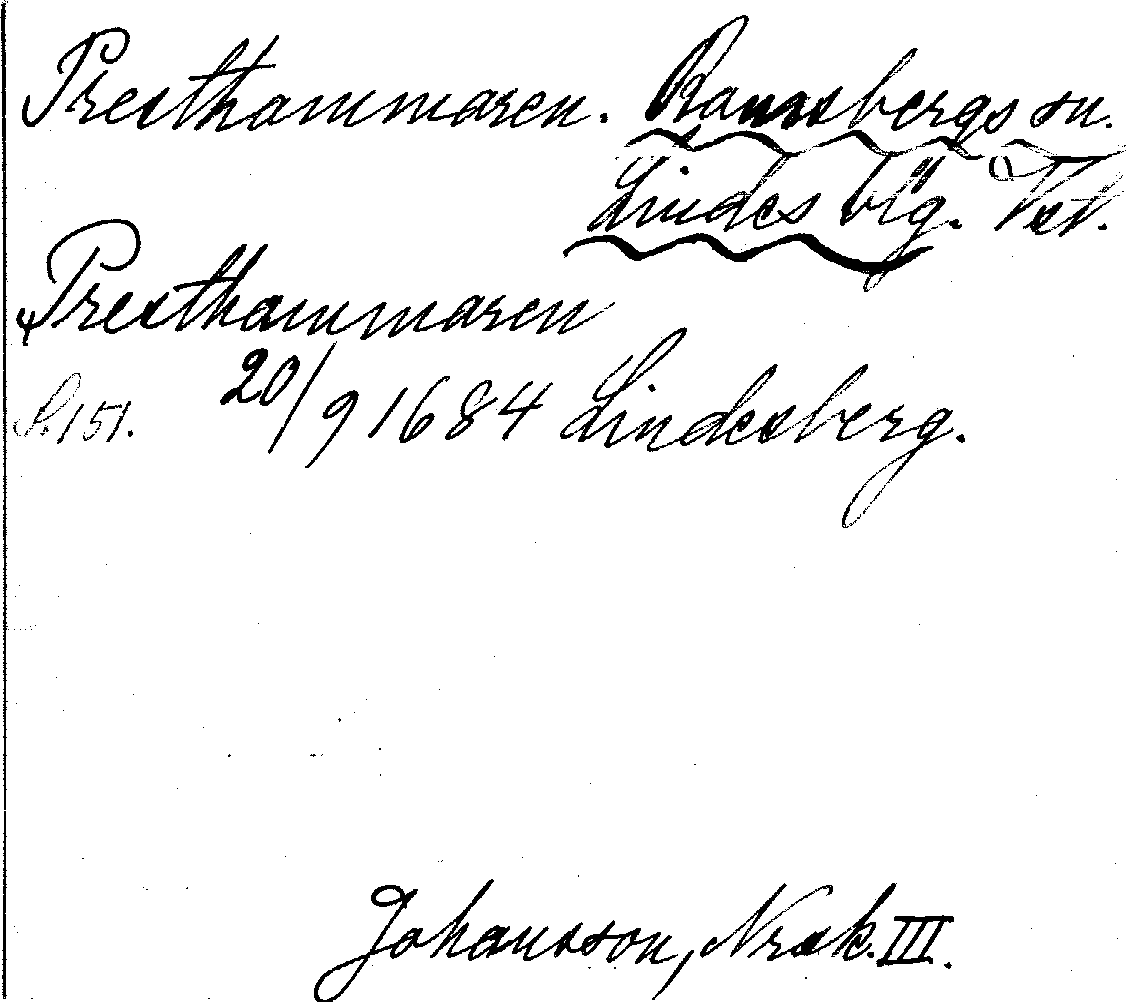 Presthammaren. Ramsbergs sn.
Lindes blg. Vstl.
Presthammaren
S. 151. 20/9 1684 Lindesberg.
Johansson, Nrsk. III.